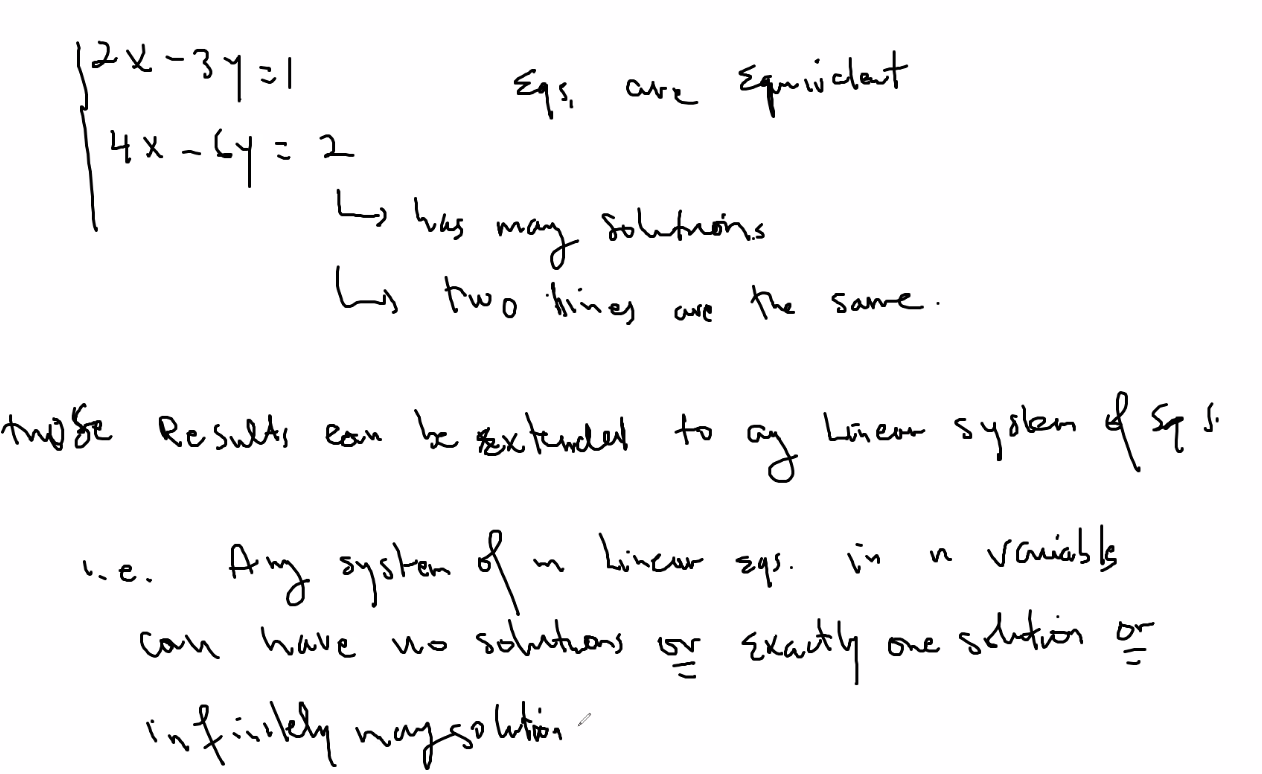 2x - 3y = 1
Eqs. are Equivalent
4x - 6y = 2
↳ has may solutions
↳ two lines are the same.
those Results can be extended to ay Linear system of Eqs.
i.e. Any system of m Linear eqs. in n variabls
can have no solutions or Exactly one solution or
infinitely may solution